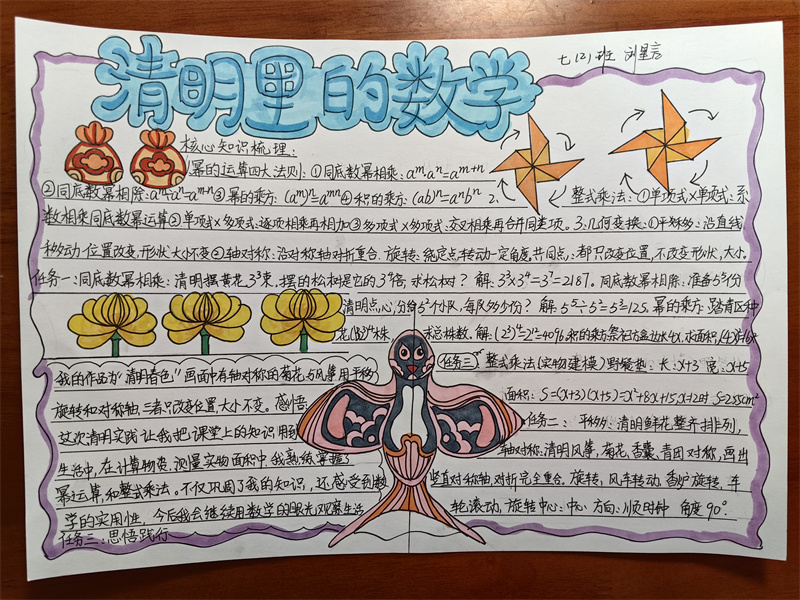 清明里的数学
七(2)班 刘星言
核心知识梳理:
1幂的运算四大法则:①同底数幂相乘:aᵐ·aⁿ=aᵐ⁺ⁿ
②同底数幂相除:aᵐ÷aⁿ=aᵐ⁻ⁿ③幂的乘方:(aᵐ)ⁿ=aᵐⁿ④积的乘方:(ab)ⁿ=aⁿbⁿ 2、整式乘法:①单项式×单项式:系
数相乘同底数幂运算②单项式×多项式:逐项相乘再相加③多项式×多项式:交叉相乘再合并同类项。3.几何变换:①平移:沿直线
移动,位置改变,形状、大小不变②轴对称:沿对称轴对折重合.旋转:绕定点转动一定角度.共同点:都只改变位置,不改变形状、大小。
任务一:同底数幂相乘:清明摆黄花3³束,摆的松树是它的3⁴倍,求松树?解:3³×3⁴=3⁷=2187。同底数幂相除:准备5⁵份
清明点心,分给5²个小队,每队多少份?解:5⁵÷5²=5³=125.幂的乘方:踏青区种
花(2³)⁴株,求总株数.解:(2³)⁴=2¹²=4096.积的乘方:
任务三:整式乘法(实物建模)野餐垫:长:x+3 宽:x+5
面积:S=(x+3)(x+5)=x²+8x+15,x=12时 S=255cm²
任务二:平移:清明鲜花整齐排列,
轴对称:清明风筝,菊花,香囊,青团对称,画出
竖直对称轴,对折完全重合。旋转,风车转动,香炉旋转,车
轮滚动,旋转中心:中心 方向:顺时针 角度90°.
我的作品为“清明春色”画面中有轴对称的菊花与风筝用平移
旋转和对称轴,三者只改变位置,大小不变。感悟:
这次清明实践让我把课堂上的知识用到
生活中,在计算物资,测量实物面积中,我熟练掌握了
幂运算,和整式乘法。不仅巩固了我的知识,还感受到数
学的实用性。今后我会继续用数学的眼光,观察生活
任务三:思悟践行